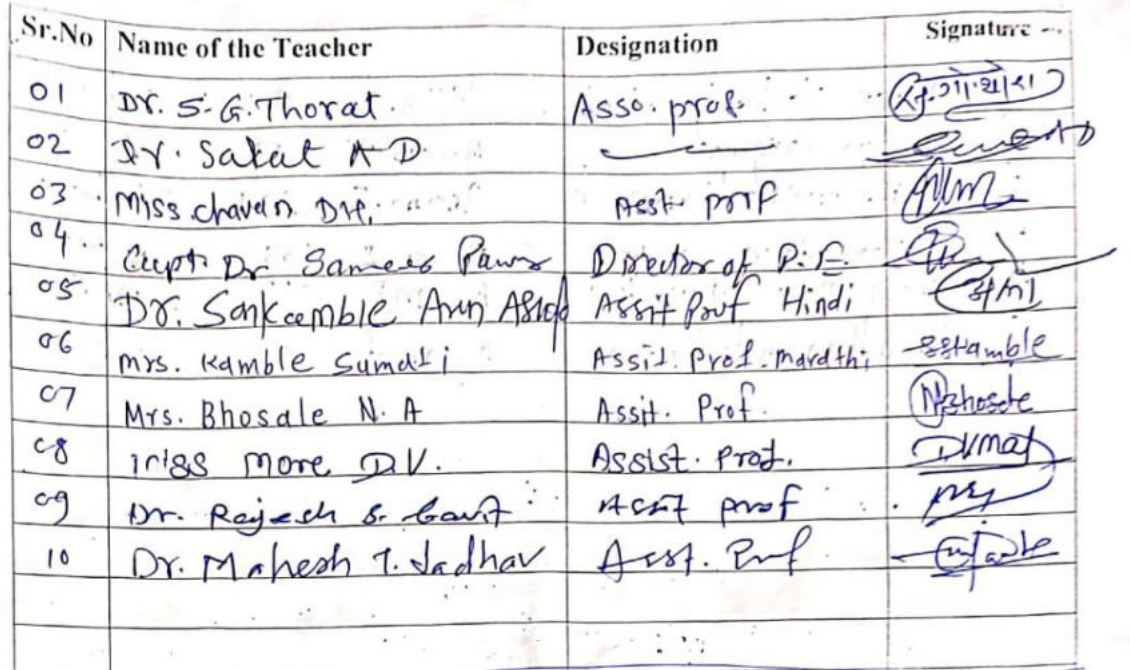 Sr.No Name of the Teacher Designation Signature
01 Dr. S. G. Thorat Asso. prof. सु.गो.थोरात
02 Dr. Sakat A D
03 Miss chavan D.H. Asst. prof
04 Capt. Dr Sameer Pawar Director of P.E
05 Dr. Sonkamble Arun Ashok Assit Prof Hindi
06 Mrs. Kamble Sumati Assit. Prof. Marathi SSKamble
07 Mrs. Bhosale N. A Assit. Prof. NBhosale
08 Miss More D.V. Assist. Prof.
09 Dr. Rajesh S. Gavit Assit prof
10 Dr. Mahesh T. Jadhav Asst. Prof